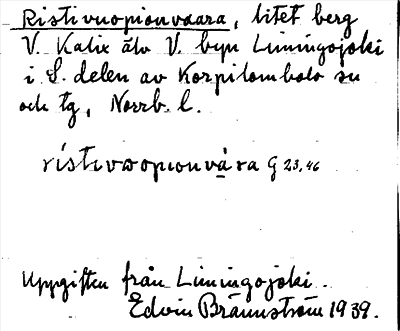 Ristivuopionvaara, litet berg
V. Kalix älv V. byn Liningojoki
i S. delen av Korpilombolo sn
och tg, Norrb. l.
rístivωopıonvàra G 23,46
Uppgiften från Liningojoki.
Edvin Brännström 1939.